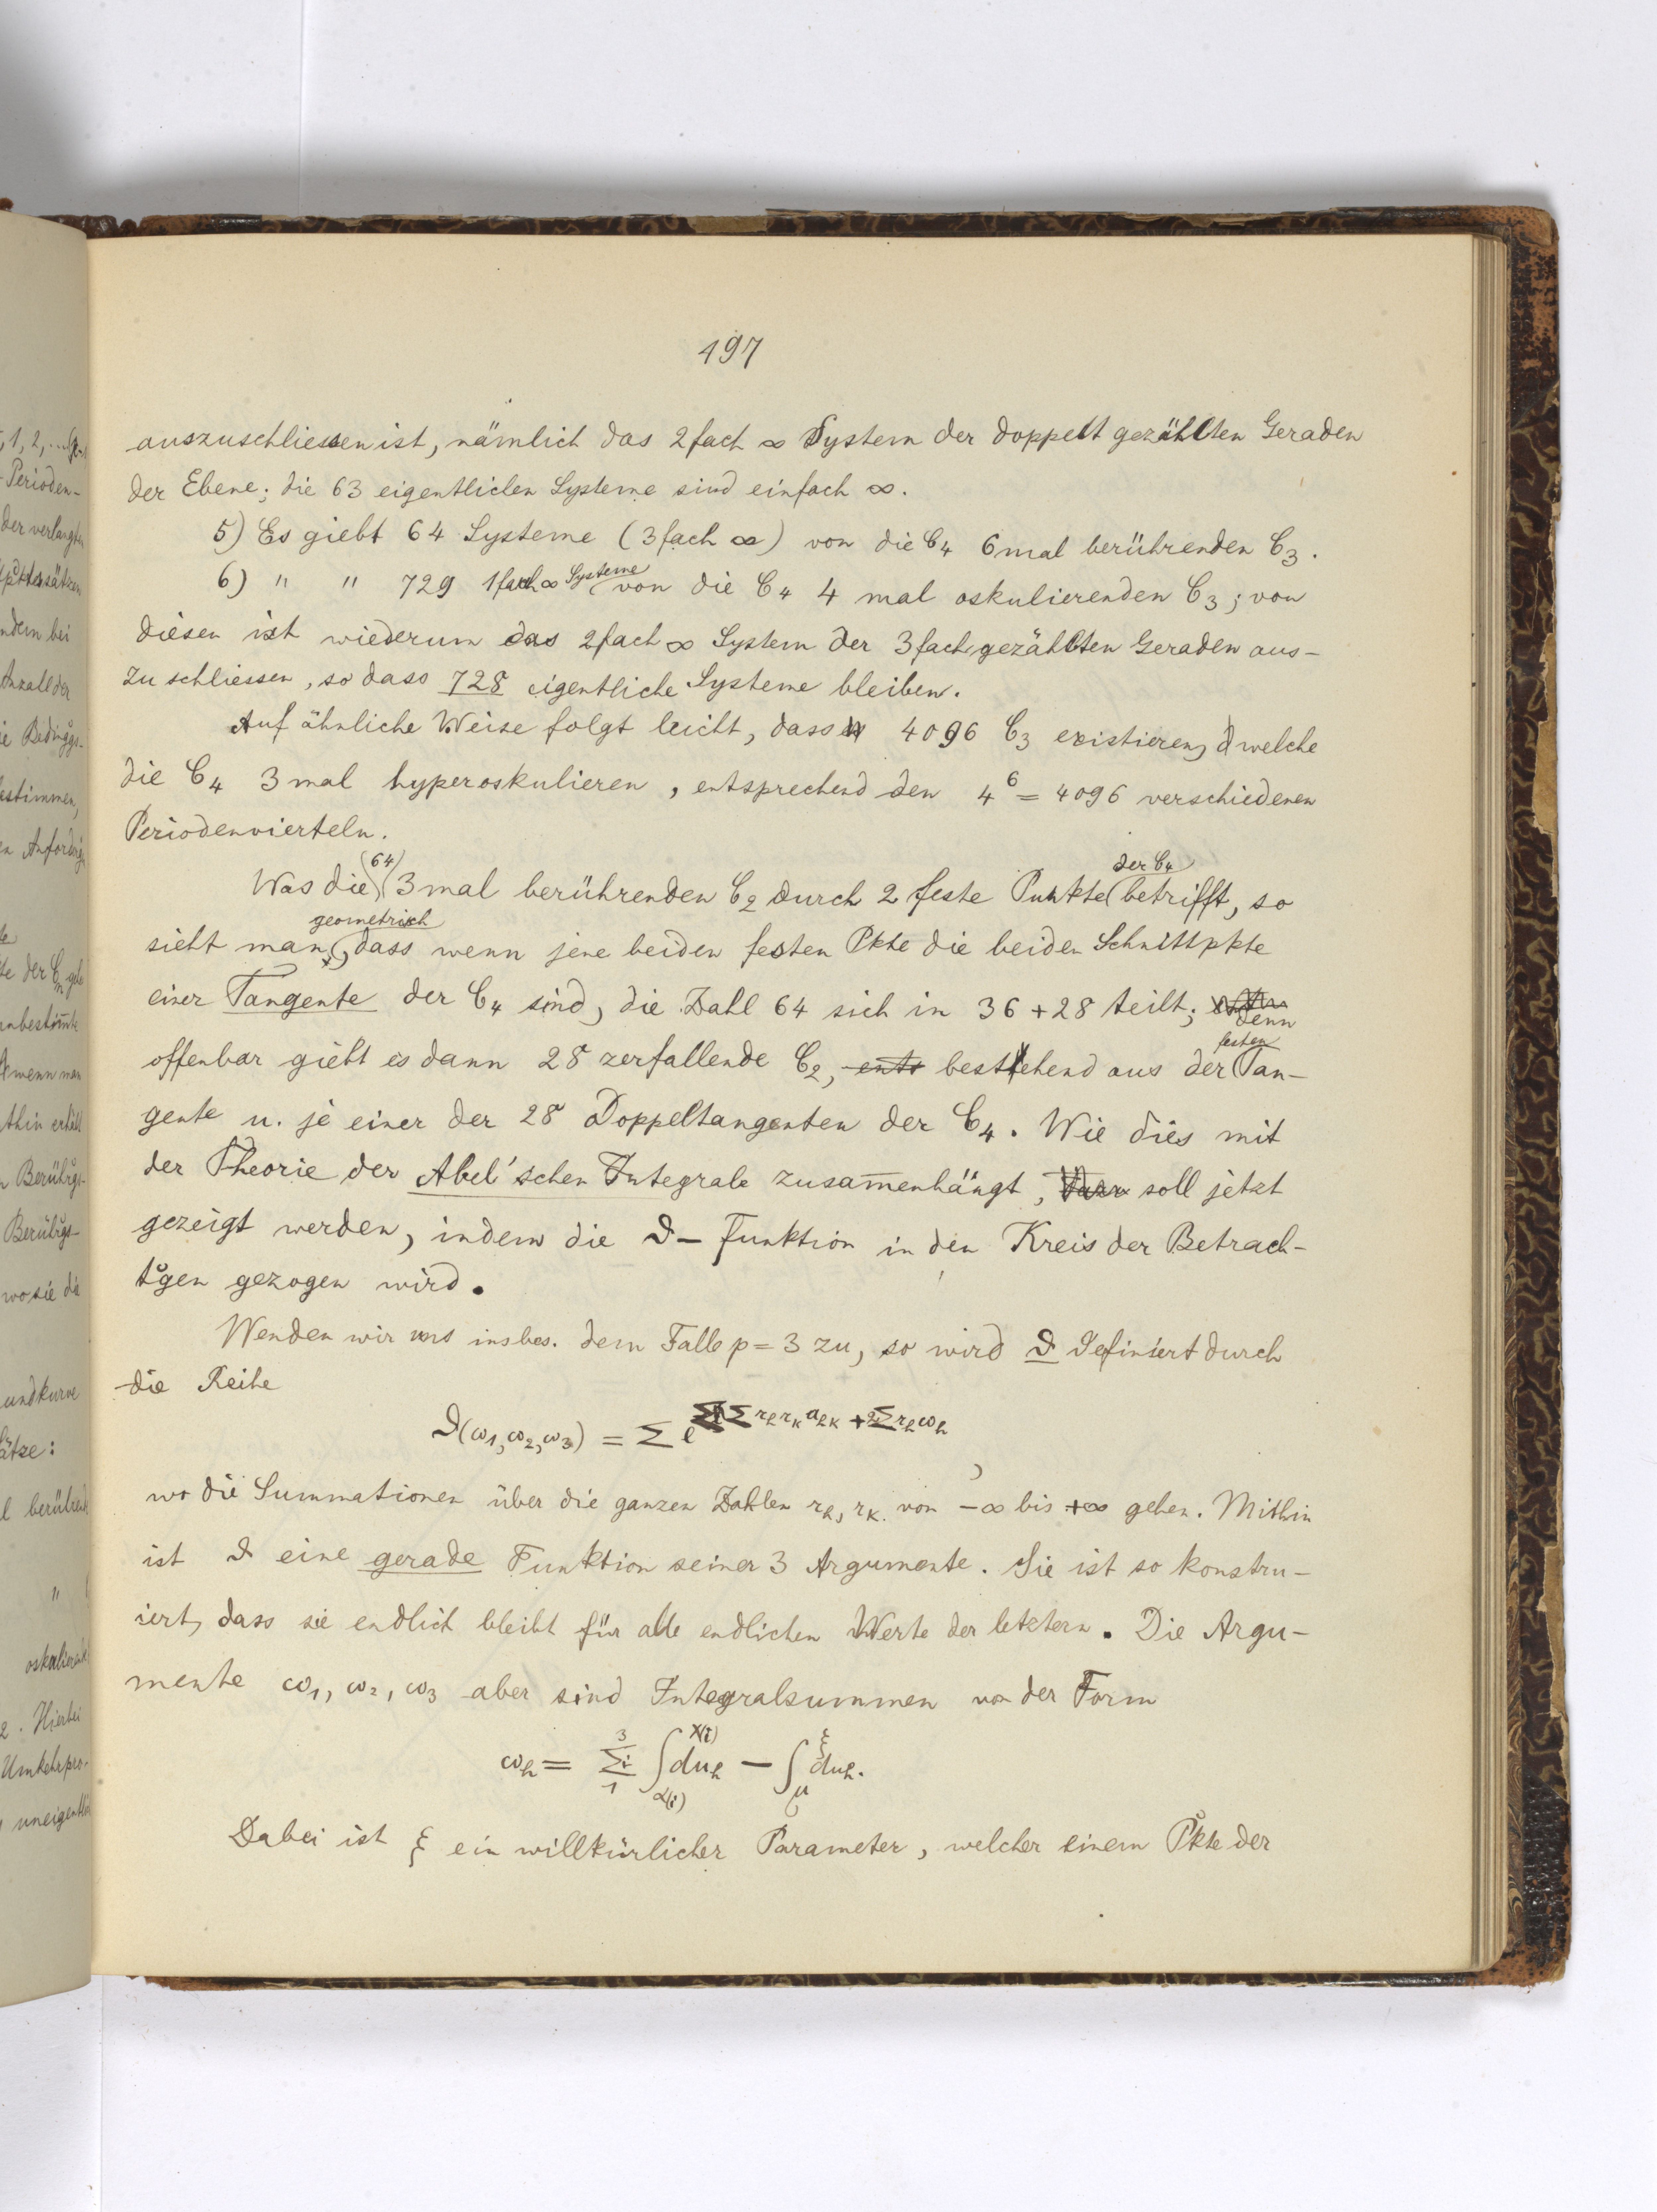 197
auszuschliessen ist, nämlich das 2fach ∞ System der doppelt gezählten Geraden
der Ebene; die 63 eigentlichen Systeme sind einfach ∞.
5) Es giebt 64 Systeme (3fach ∞) von die C₄ 6mal berührenden C₃.
6) " " 729 1fach ∞ Systeme von die C₄ 4 mal oskulierenden C₃; von
diesen ist wiederum das 2fach ∞ System der 3fach gezählten Geraden aus-
zuschliessen, so dass 728 eigentliche Systeme bleiben.
Auf ähnliche Weise folgt leicht, dass 4096 C₃ existieren, welche
die C₄ 3mal hyperoskulieren, entsprechend den 4⁶ = 4096 verschiedenen
Periodenvierteln.
Was die (64) 3mal berührenden C₂ durch 2 feste Punkte der C₄ betrifft, so
sieht man geometrisch, dass wenn jene beiden festen Pkte die beiden Schnittpkte
einer Tangente der C₄ sind, die Zahl 64 sich in 36 + 28 teilt; denn
offenbar giebt es dann 28 zerfallende C₂, bestehend aus der festen Tan-
gente u. je einer der 28 Doppeltangenten der C₄. Wie dies mit
der Theorie der Abel'schen Integrale zusam̅enhängt, soll jetzt
gezeigt werden, indem die ϑ-Funktion in den Kreis der Betrach-
tg̊en gezogen wird.
Wenden wir uns insbes. dem Falle p = 3 zu, so wird ϑ definiert durch
die Reihe
ϑ(ω₁, ω₂, ω₃) = Σ e^{ΣΣ r_h r_k a_hk + 2Σ r_h ω_h},
wo die Summationen über die ganzen Zahlen r_h, r_k von −∞ bis +∞ gehen. Mithin
ist ϑ eine gerade Funktion seiner 3 Argumente. Sie ist so konstru-
iert, dass sie endlich bleibt für alle endlichen Werte der letztern. Die Argu-
mente ω₁, ω₂, ω₃ aber sind Integralsummen von der Form
ω_h = Σ_i₁³ ∫_{α(i)}^{x(i)} du_h − ∫_μ^ξ du_h.
Dabei ist ξ ein willkürlicher Parameter, welcher einem Pkte der